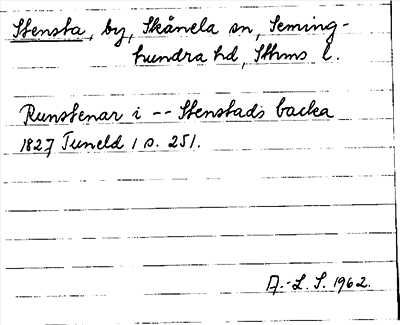 Stensta, by, Skånela sn, Seming-
hundra hd, Sthms l.
Runstenar i -- Stenstads backa
1827 Tuneld 1 s. 251.
A.-L. S. 1962.